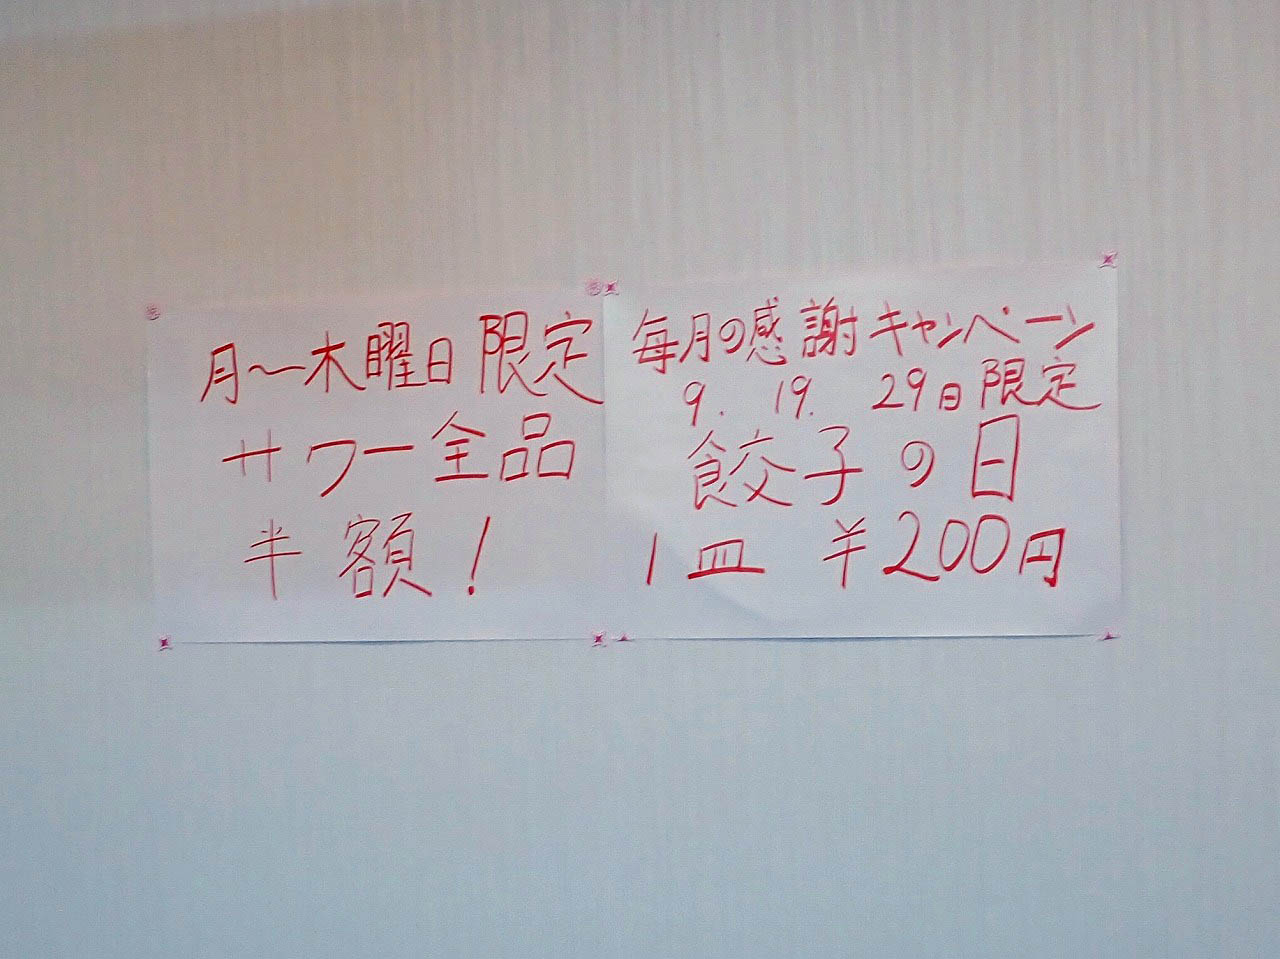 月〜木曜日限定
サワー全品
半額!
毎月の感謝キャンペーン
9. 19. 29日限定
餃子の日
1皿 ¥200円